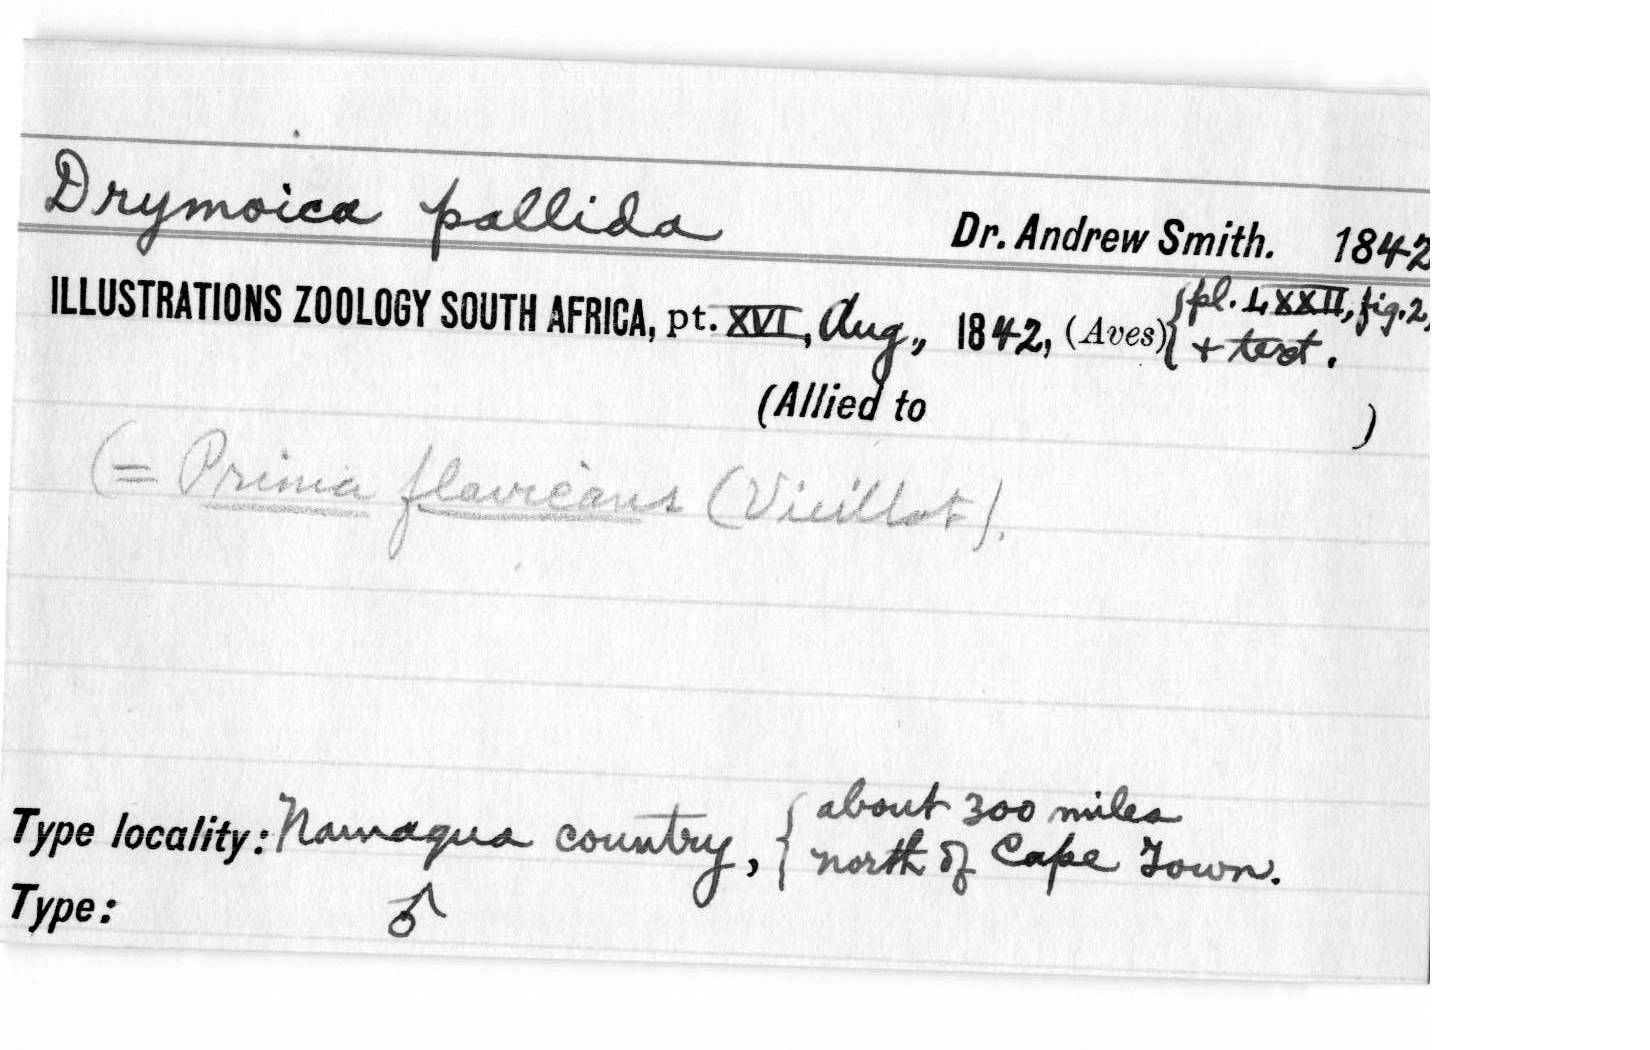 Drymoica pallida Dr. Andrew Smith. 1842
ILLUSTRATIONS ZOOLOGY SOUTH AFRICA, pt. XVI, Aug., 1842, (Aves) { pl. LXXII, fig. 2,
+ text.
(Allied to )
(= Prinia flavicans (Vieillot).
Type locality: Namaqua country, { about 300 miles
north of Cape Town.
Type: ♂